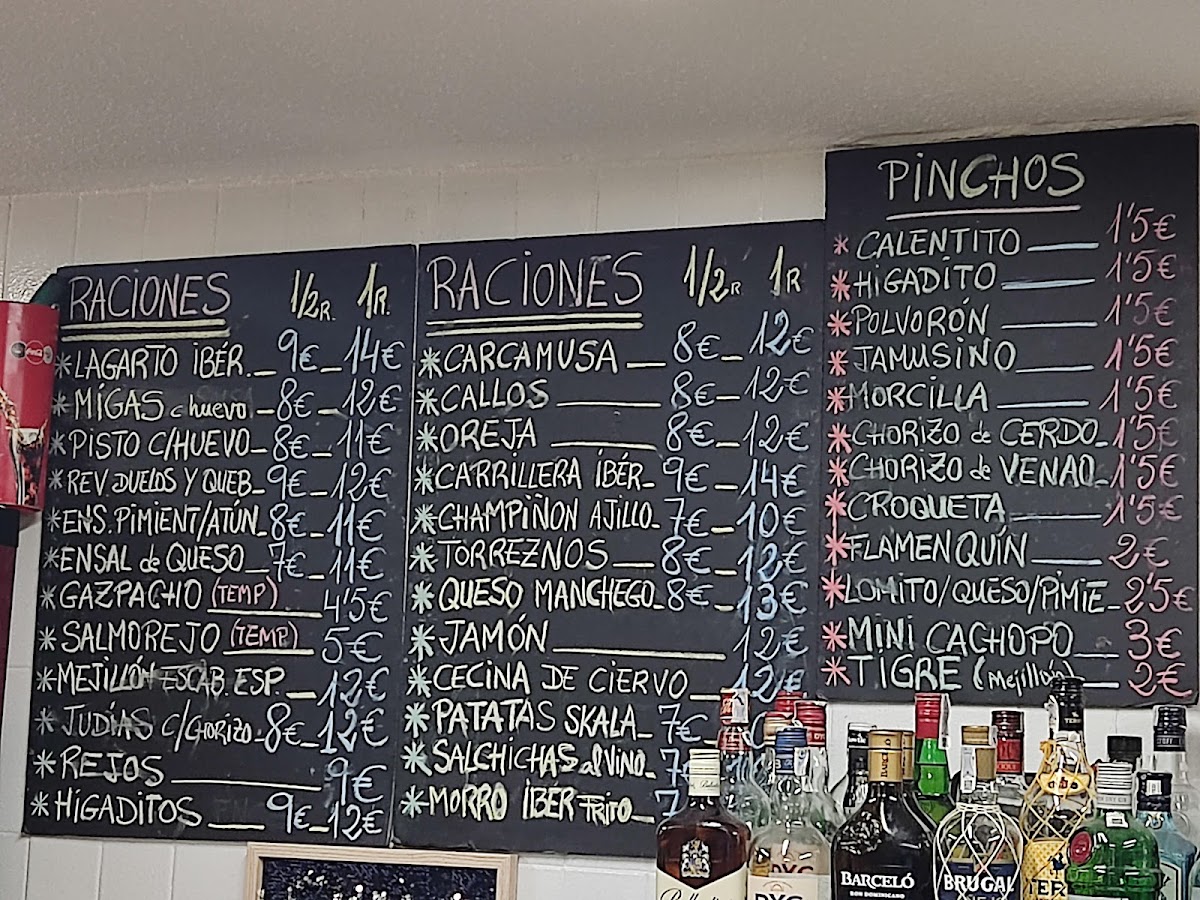 RACIONES 1/2R. 1R.
*LAGARTO IBÉR._ 9€_14€
*MIGAS c huevo_8€_12€
*PISTO C/HUEVO_8€_11€
*REV. DUELOS Y QUEB_9€_12€
*ENS. PIMIENT/ATÚN_8€_11€
*ENSAL de QUESO_7€_11€
*GAZPACHO (TEMP)_4'5€
*SALMOREJO (TEMP)_5€
*MEJILLÓN ESCAB. ESP._12€
*JUDÍAS C/CHORIZO_8€_12€
*REJOS_9€
*HIGADITOS_9€_12€
RACIONES 1/2R 1R
*CARCAMUSA_8€_12€
*CALLOS_8€_12€
*OREJA_8€_12€
*CARRILLERA IBÉR_9€_14€
*CHAMPIÑON AJILLO_7€_10€
*TORREZNOS_8€_12€
*QUESO MANCHEGO_8€_13€
*JAMÓN_12€
*CECINA DE CIERVO_12€
*PATATAS SKALA_7€
*SALCHICHAS al VINO_7
*MORRO IBER FRITO_7
PINCHOS
*CALENTITO_1'5€
*HIGADITO_1'5€
*POLVORÓN_1'5€
*JAMUSINO_1'5€
*MORCILLA_1'5€
*CHORIZO de CERDO_1'5€
*CHORIZO de VENAO_1'5€
*CROQUETA_1'5€
*FLAMENQUÍN_2€
*LOMITO/QUESO/PIMIE_2'5€
*MINI CACHOPO_3€
*TIGRE (Mejillón)_2€
BARCELÓ
RON DOMINICANO
BRUGAL
DYC